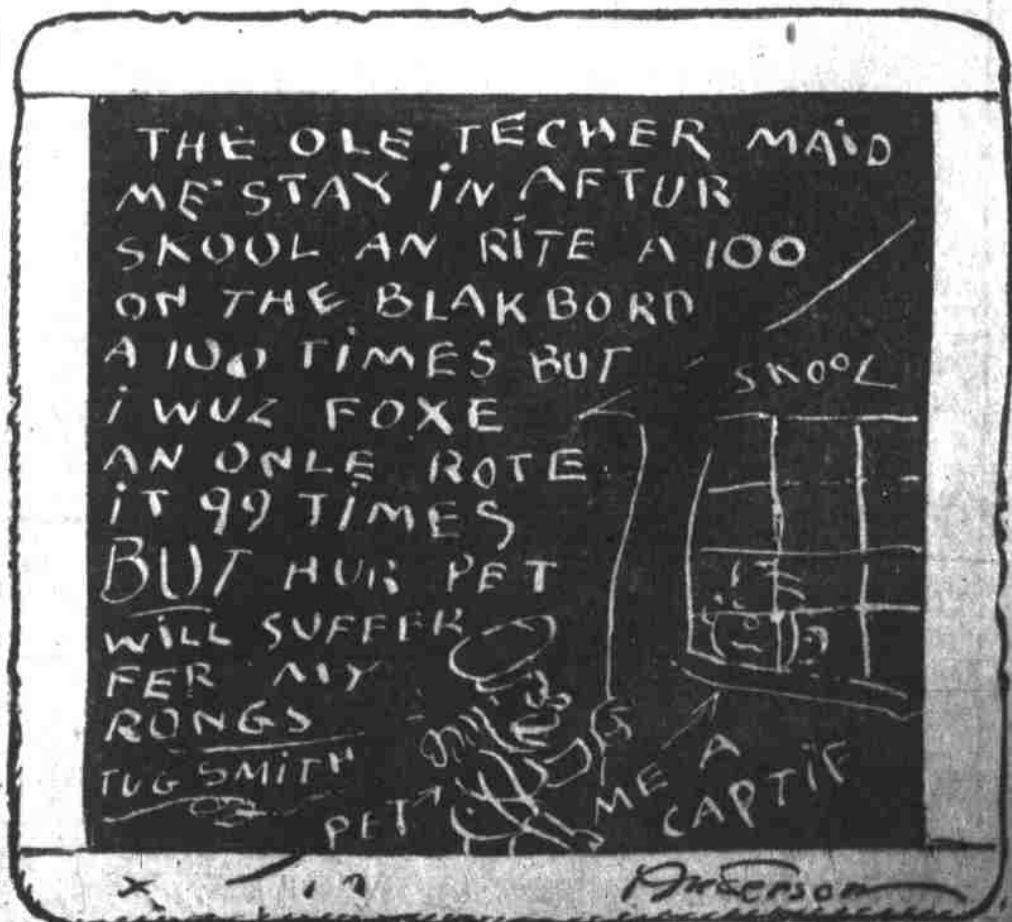 THE OLE TECHER MAID
ME STAY IN AFTUR
SKOOL AN RITE A 100
ON THE BLAKBORD
A 100 TIMES BUT
I WUZ FOXE
AN ONLE ROTE
IT 99 TIMES
BUT HUR PET
WILL SUFFER
FER MY
RONGS
TUG SMITH
SKOOL
PET
ME A
CAPTIF
Anderson